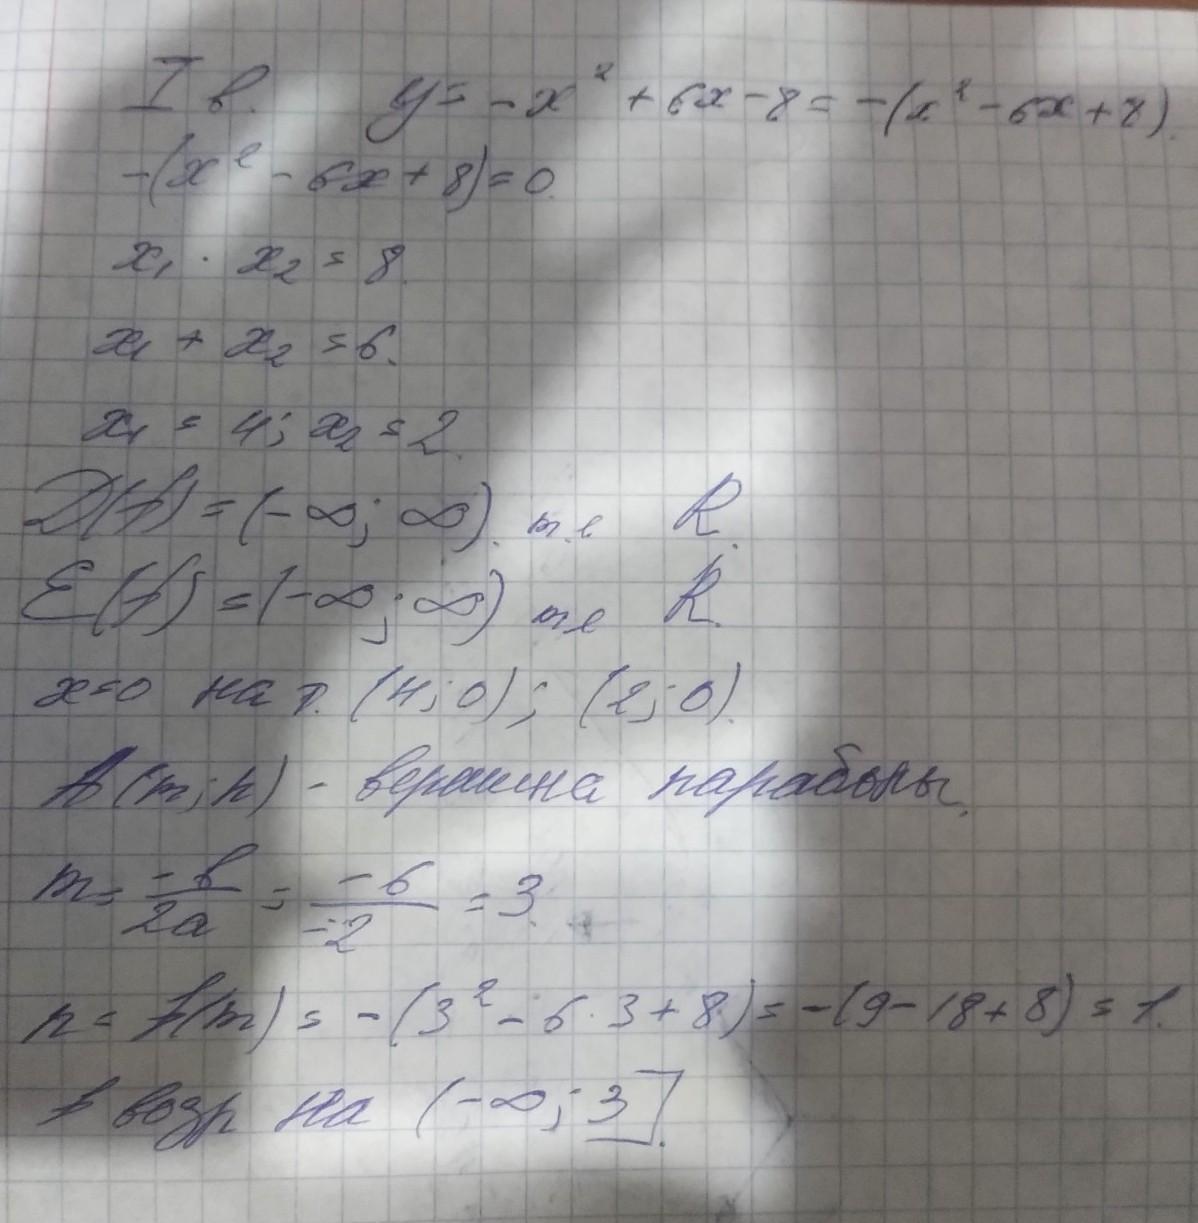 I в. y = -x² + 6x - 8 = -(x² - 6x + 8).
-(x² - 6x + 8) = 0.
x₁ · x₂ = 8.
x₁ + x₂ = 6.
x₁ = 4; x₂ = 2.
D(f) = (-∞; ∞). т.е R.
E(f) = (-∞; ∞) т.е R.
x=0 на т. (4; 0); (2; 0).
A(m; n) - вершина параболы.
m = -b/2a = -6/-2 = 3.
n = f(m) = -(3² - 6·3 + 8) = -(9 - 18 + 8) = 1.
f возр на (-∞; 3].